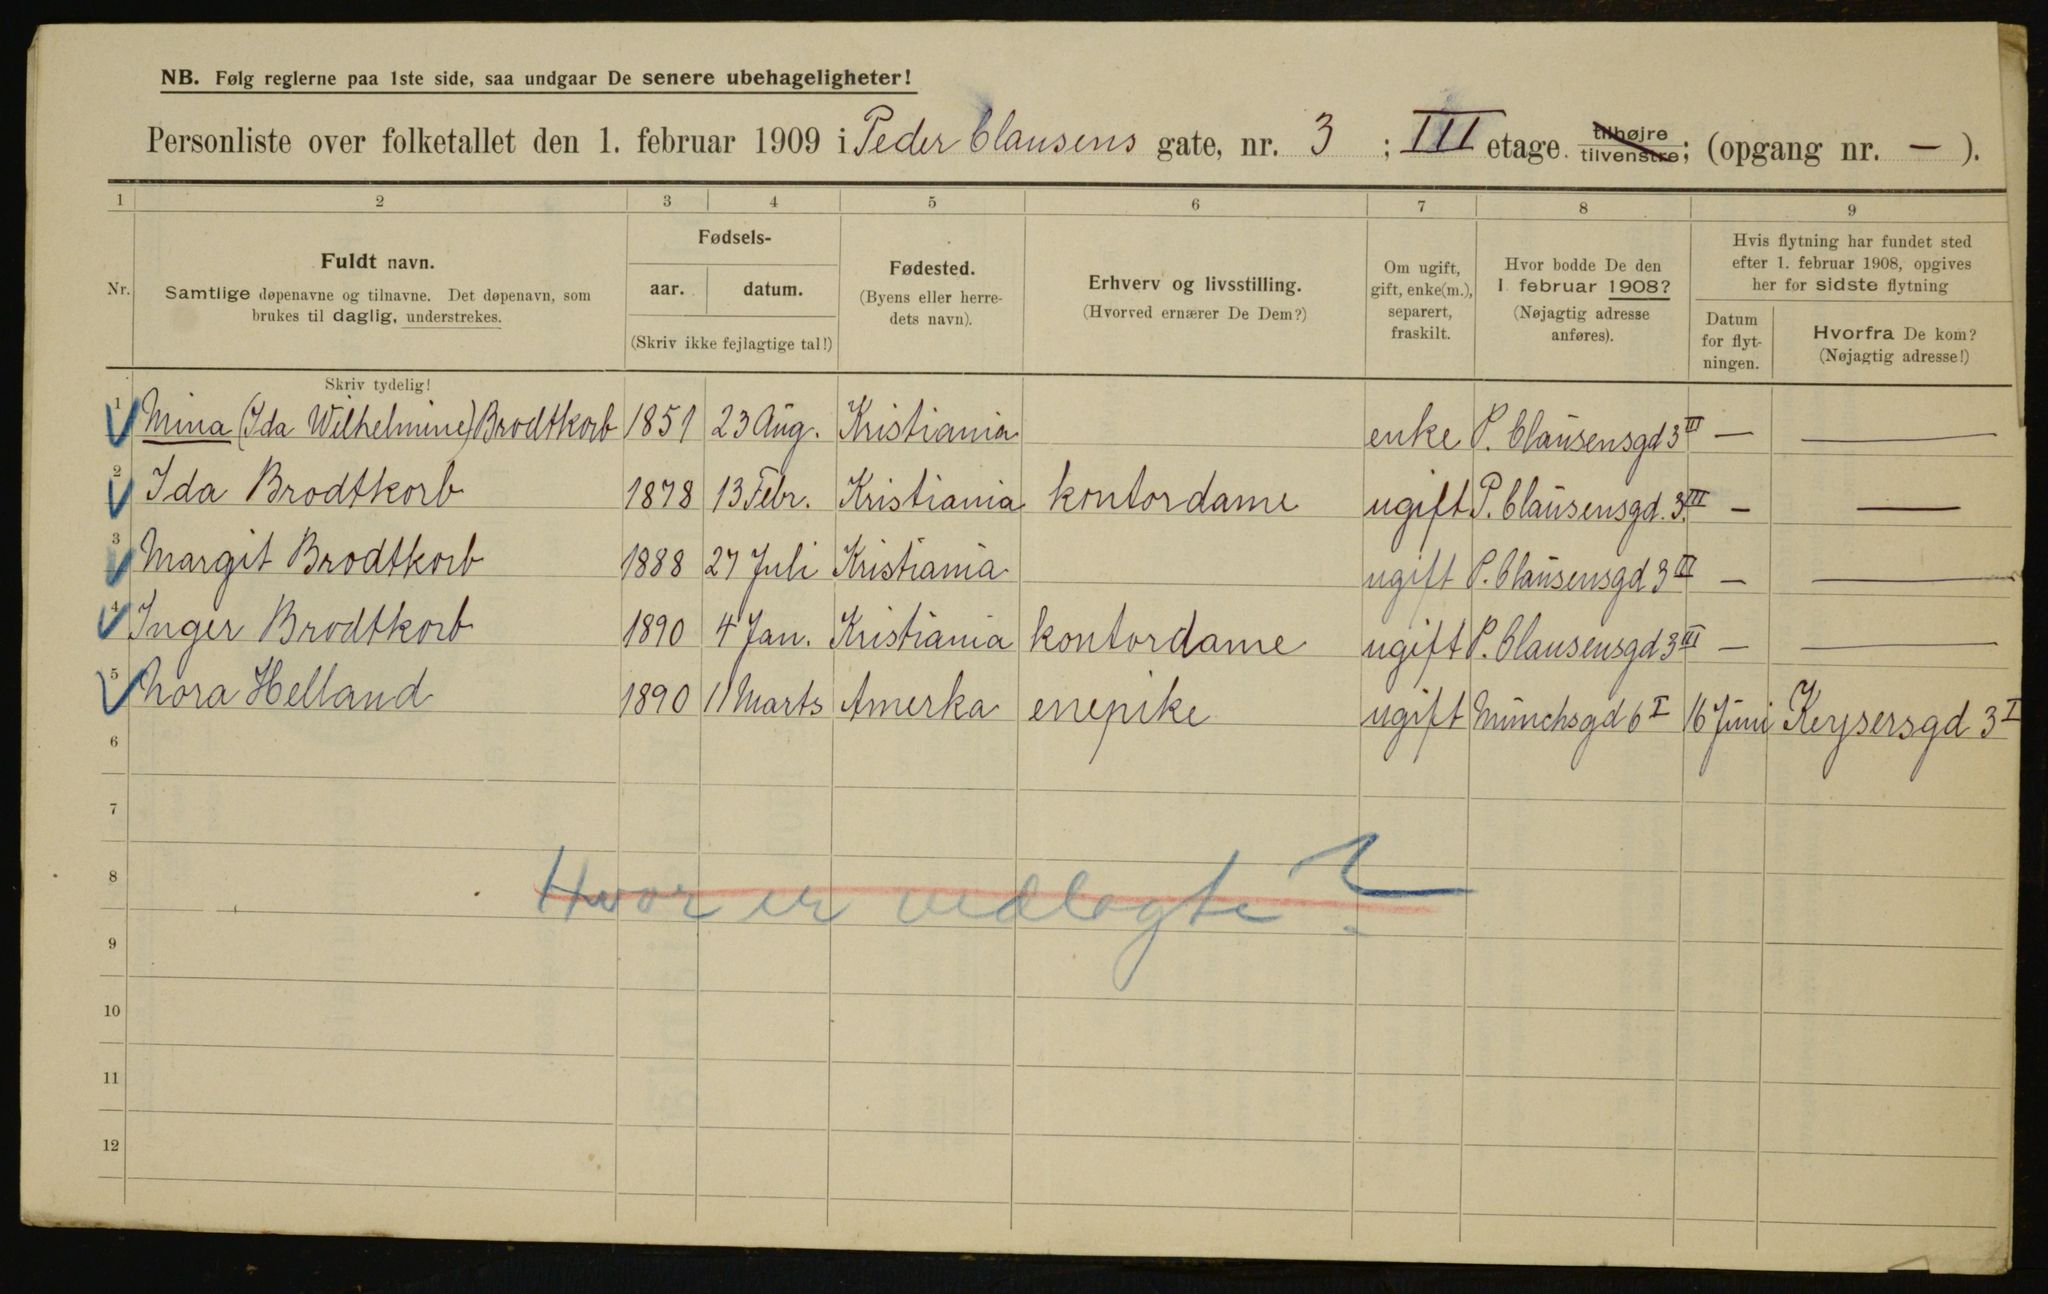 NB. Følg reglerne paa 1ste side, saa undgaar De senere ubehageligheter!
Personliste over folketallet den 1. februar 1909 i Peder Clausens gate, nr. 3 ; III etage. tilhøjre tilvenstre; (opgang nr. — ).
1 2 3 4 5 6 7 8 9
Nr.
Fuldt navn.
Samtlige døpenavne og tilnavne. Det døpenavn, som
brukes til daglig, understrekes.
Skriv tydelig!
Fødsels-
aar. datum.
(Skriv ikke fejlagtige tal!)
Fødested.
(Byens eller herre-
dets navn).
Erhverv og livsstilling.
(Hvorved ernærer De Dem?)
Om ugift,
gift, enke(m.),
separert,
fraskilt.
Hvor bodde De den
1. februar 1908?
(Nøjagtig adresse
anføres).
Hvis flytning har fundet sted
efter 1. februar 1908, opgives
her for sidste flytning
Datum
for flyt-
ningen.
Hvorfra De kom?
(Nøjagtig adresse!)
1 Mina (Ida Wilhelmine) Brodtkorb 1851 23 Aug. Kristiania enke P. Clausensgd 3 III — —
2 Ida Brodtkorb 1878 13 Febr. Kristiania kontordame ugift P. Clausensgd. 3. III — —
3 Margit Brodtkorb 1888 27 Juli Kristiania ugift P. Clausensgd 3 III — —
4 Inger Brodtkorb 1890 4 Jan. Kristiania kontordame ugift P. Clausensgd 3 III — —
5 Nora Helland 1890 11 Marts Amerka enepike ugift Munchsgd 6 I 16 Juni Keysersgd 3 I
6
7
8 Hvor er vedlagte?
9
10
11
12